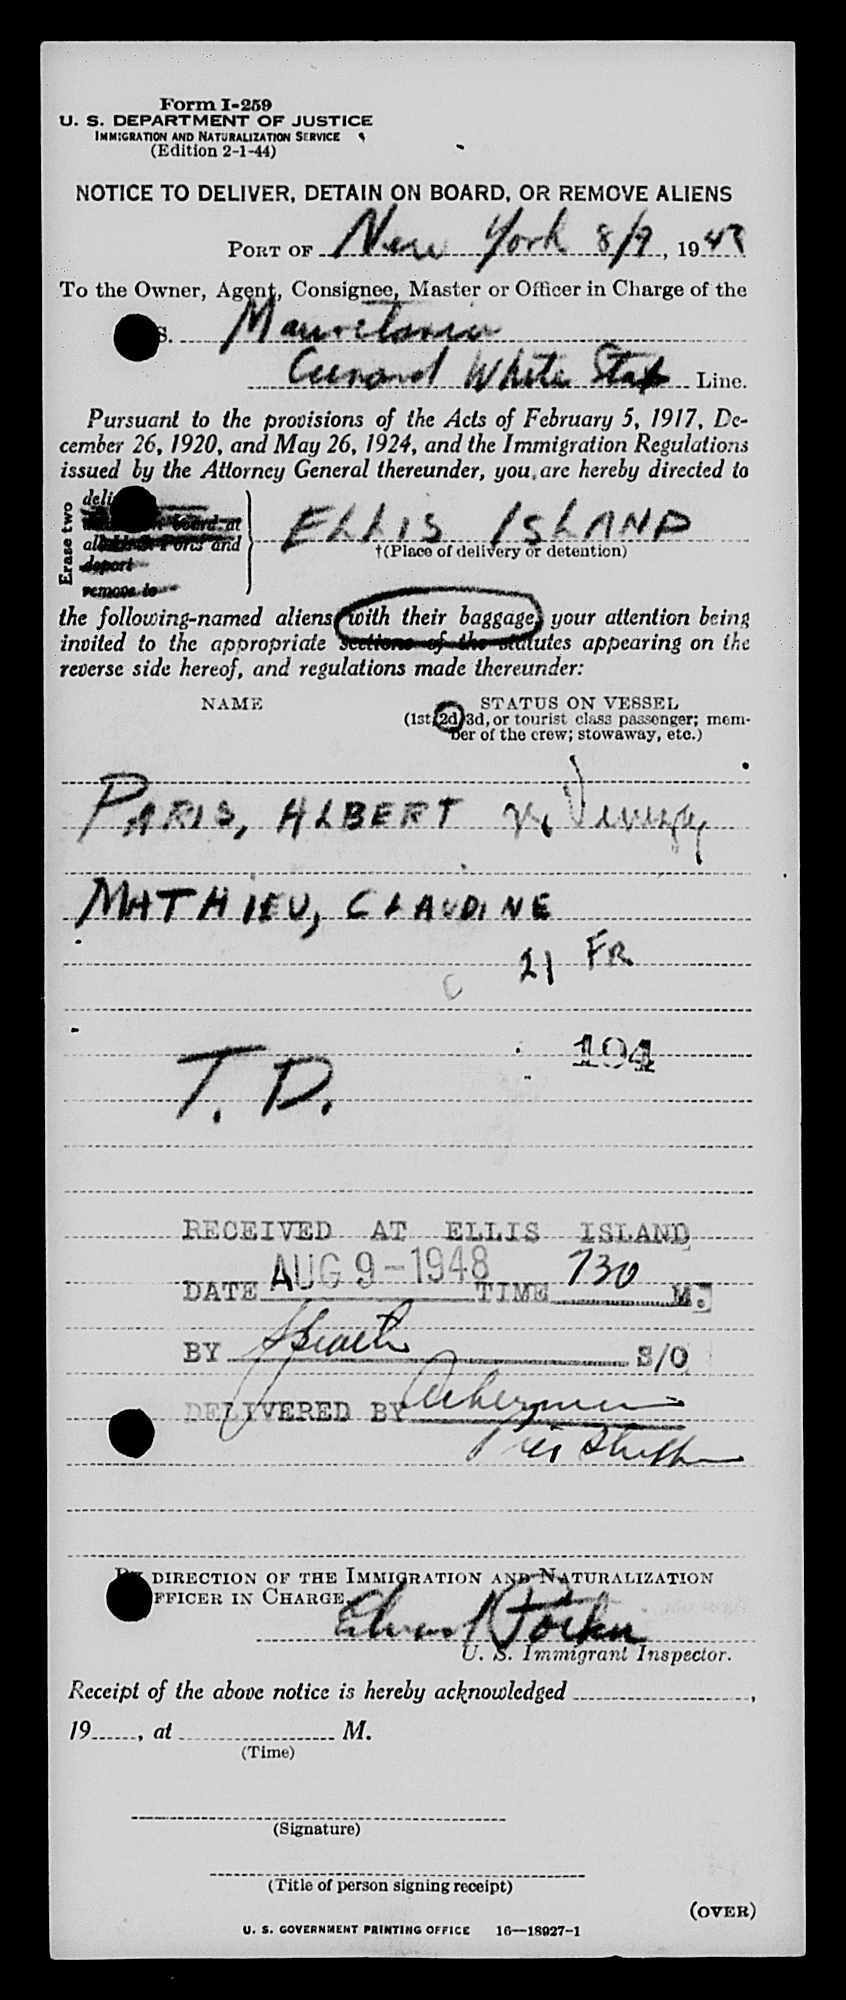 Form I-259
U. S. DEPARTMENT OF JUSTICE
IMMIGRATION AND NATURALIZATION SERVICE
(Edition 2-1-44)
NOTICE TO DELIVER, DETAIN ON BOARD, OR REMOVE ALIENS
PORT OF New York 8/9, 1948
To the Owner, Agent, Consignee, Master or Officer in Charge of the
S. Mauretania
Cunard White Star Line.
Pursuant to the provisions of the Acts of February 5, 1917, De-
cember 26, 1920, and May 26, 1924, and the Immigration Regulations
issued by the Attorney General thereunder, you are hereby directed to
Erase two
deli
board at
Ports and
deport
remove to
ELLIS ISLAND
†(Place of delivery or detention)
the following-named aliens with their baggage, your attention being
invited to the appropriate sections of the statutes appearing on the
reverse side hereof, and regulations made thereunder:
NAME STATUS ON VESSEL
(1st, 2d, 3d, or tourist class passenger; mem-
ber of the crew; stowaway, etc.)
PARIS, ALBERT
MATHIEU, CLAUDINE
21 FR.
194
T. D.
RECEIVED AT ELLIS ISLAND
DATE AUG 9-1948 TIME 730 M.
BY S/O
DELIVERED BY Ackerman
BY DIRECTION OF THE IMMIGRATION AND NATURALIZATION
FFICER IN CHARGE.
U. S. Immigrant Inspector.
Receipt of the above notice is hereby acknowledged ,
19 , at M.
(Time)
(Signature)
(Title of person signing receipt)
(OVER)
U. S. GOVERNMENT PRINTING OFFICE 16—18927-1